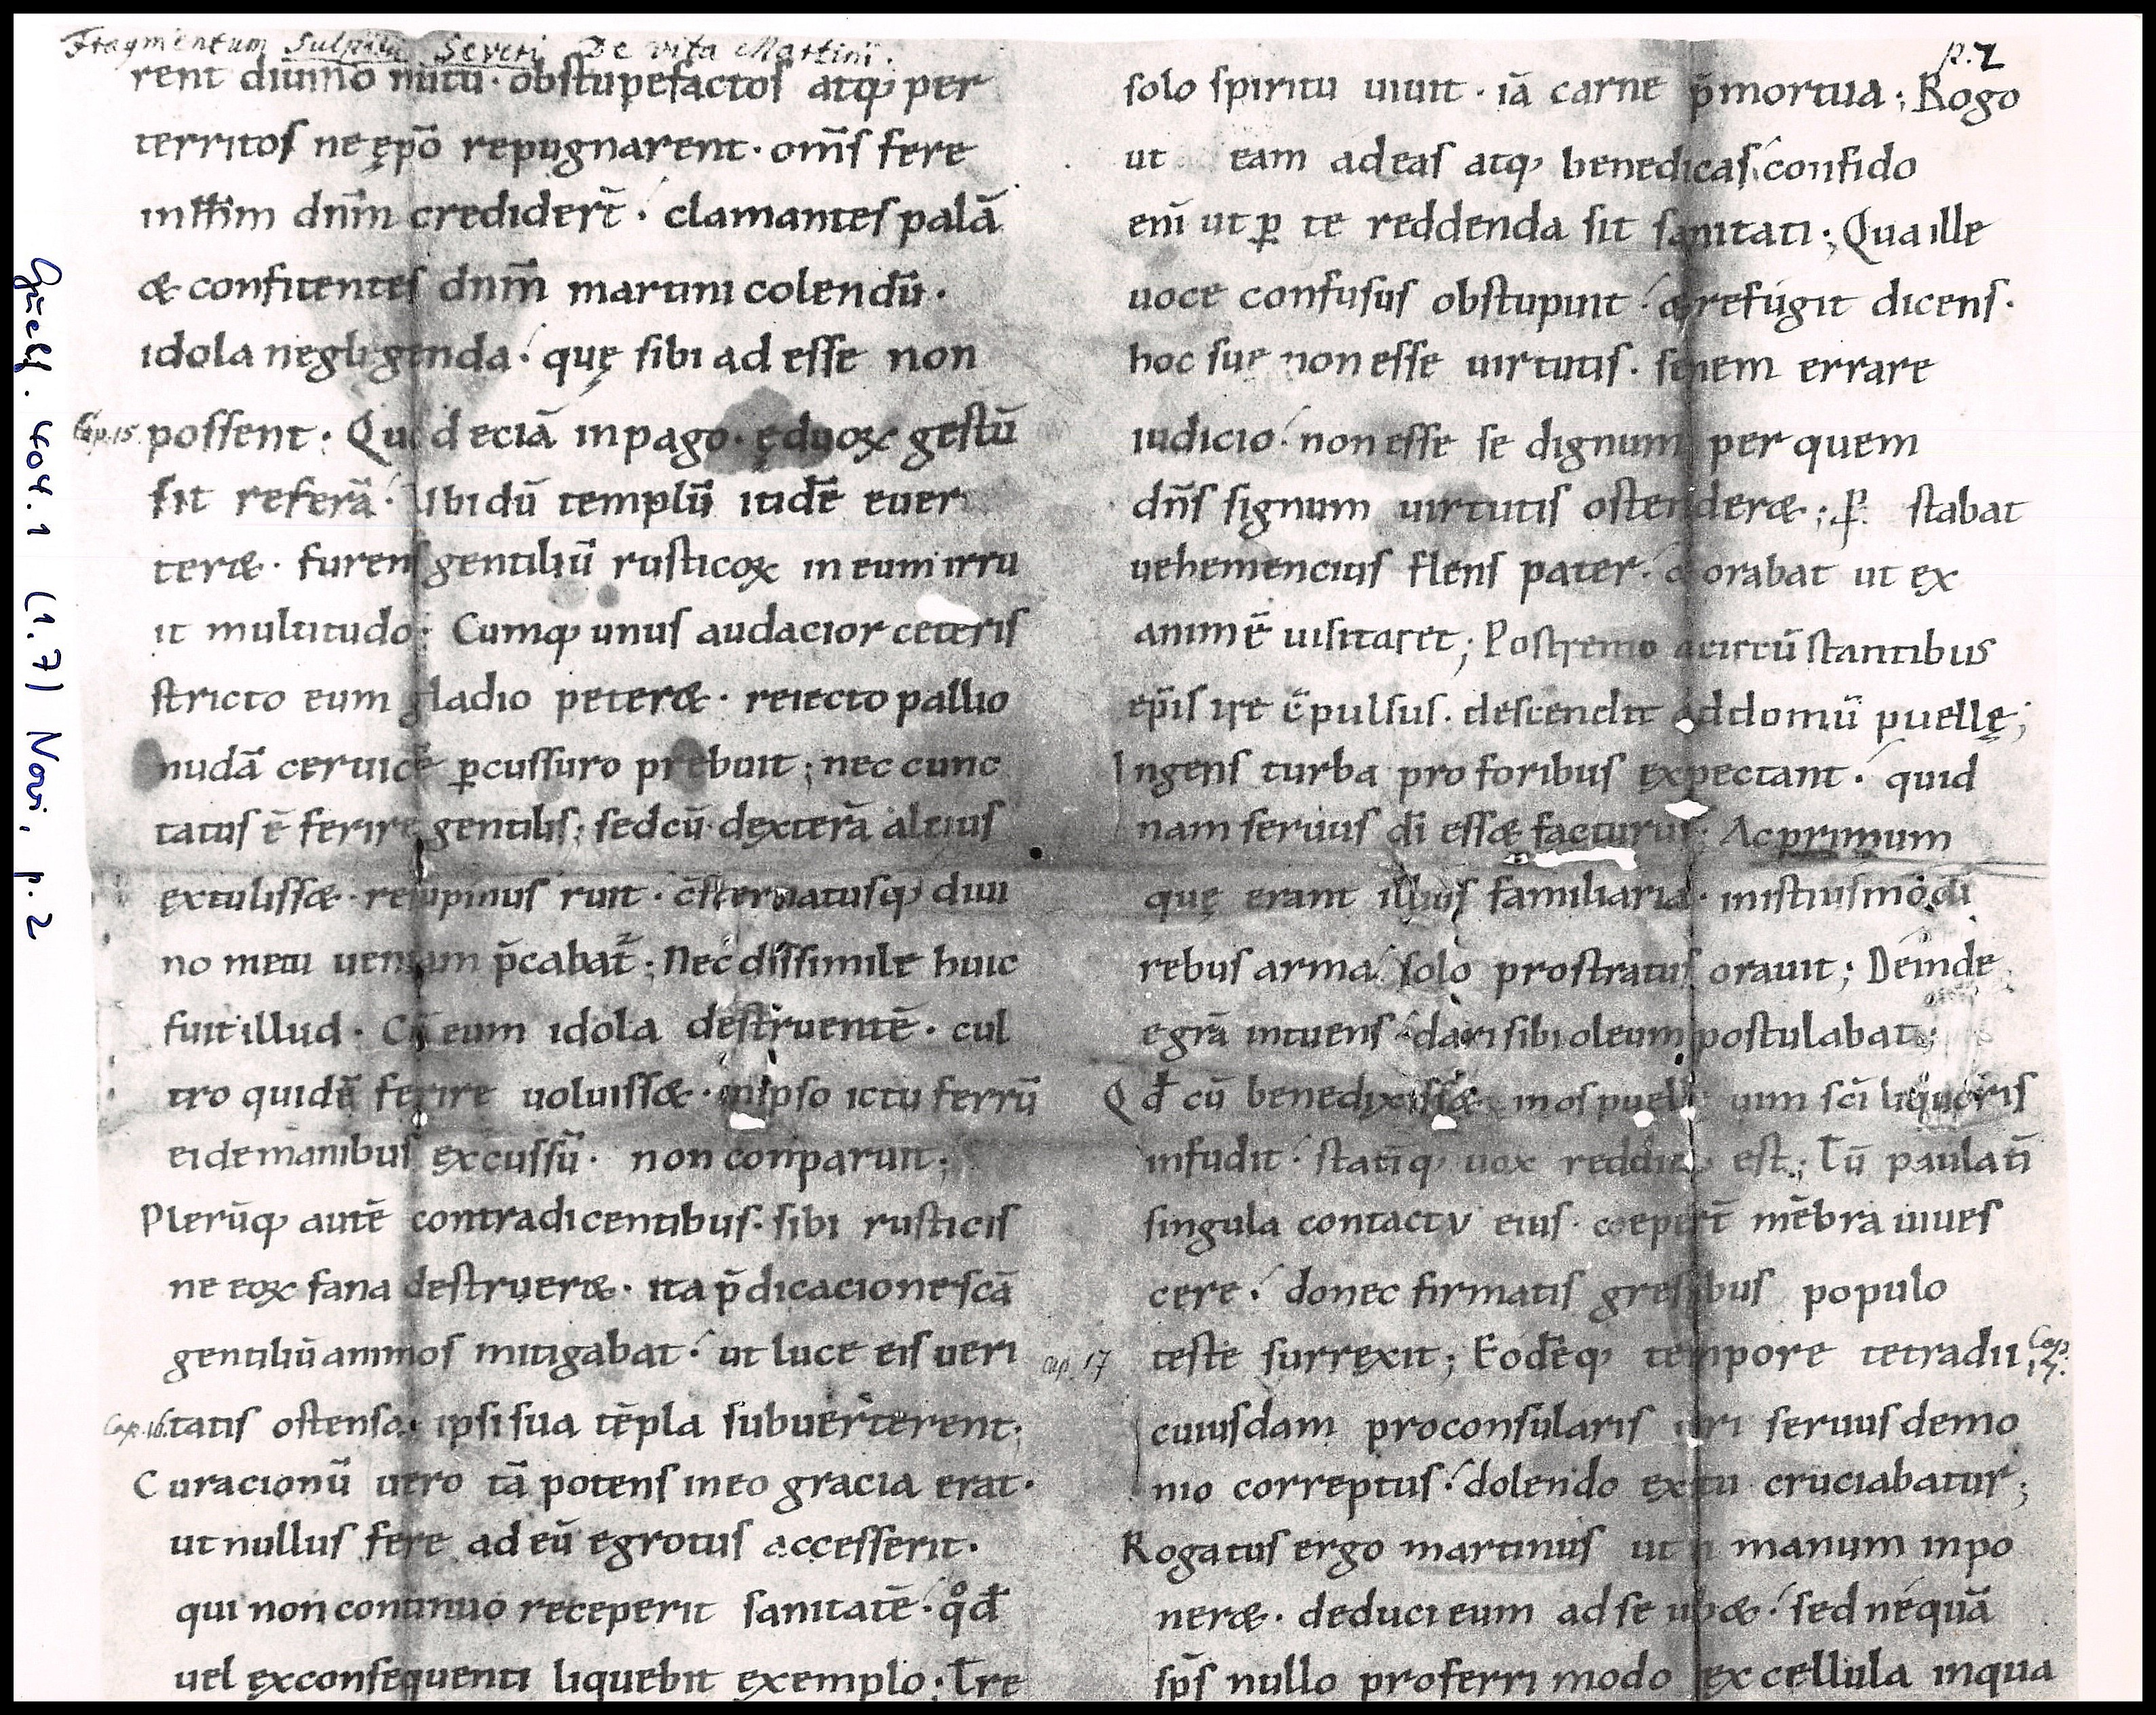 Fragmentum Sulpitii Severi De vita Martini.
p. 2
Guelf. 404.1 (1.7) Novi, p. 2
rent diuino nutu · obstupefactos atq; per
territos ne ępo̅ repugnarent · om̅s fere
in ih̅m dn̅m credider̅t · clamantes pala̅
& confitentes dn̅m martini colendu̅ ·
idola negligenda · quę sibi adesse non
Cap. 15. possent · Quid eciā in pago · ęduoꝝ gestū
sit referā · Ibi dū templū itidē euer
ter& · furens gentiliū rusticoꝝ in eum irru
it multitudo · Cumq; unus audacior ceteris
stricto eum gladio peter& · reiecto pallio
nudā ceruicē ꝑcussuro prebuit ; nec cunc
tatus ē ferire gentilis ; sed cū dexterā alcius
extuliss& · resupinus ruit · c̅sternatusq; diui
no metu ueniam p̅cabat̅ ; Nec dissimile huic
fuit illud · Cū eum idola destruentē · cul
tro quidē ferire uoluiss& · in ipso ictu ferrū
ei de manibus excussū · non conparuit ;
Plerūq; autē contradicentibus · sibi rusticis
ne eoꝝ fana destruer& · ita p̅dicacione scā
gentiliū animos mitigabat · ut luce eis ueri
Cap. 16. tatis ostensa · ipsi sua tēpla subuerterent ;
Curacionū uero tā potens in eo gracia erat ·
ut nullus fere ad eū egrotus accesserit ·
qui non continuo receperit sanitatē · qͦd̅
uel ex consequenti liquebit exemplo ; Tre
solo spiritu uiuit · iā carne p̅mortua ; Rogo
ut eam adeas atq; benedicas · confido
eni̅ ut ꝑ te reddenda sit sanitati ; Qua ille
uoce confusus obstupuit · & refugit dicens ·
hoc sue non esse uirtutis · senem errare
iudicio · non esse se dignum per quem
dn̅s signum uirtutis ostender& ; stabat
uehemencius flens pater · & orabat ut ex
animē uisitaret ; Postremo a circū stantibus
ep̅is ire c̅pulsus · descendit ad domū puellę ;
Ingens turba pro foribus expectant · quid
nam seruus di̅ ess& facturus ; Ac primum
quę erant illius familiaria · in istius modi
rebus arma · solo prostratus orauit ; Deinde
egrā intuens · dari sibi oleum postulabat ;
Qd̅ cū benedixiss& · in os puellę uim sc̅i liquoris
infudit · stati̅q; uox reddita est ; Tū paulati̅
singula contactu eius · coeper̅t mēbra uiues
cere · donec firmatis gressibus populo
cap. 17 teste surrexit ; Eodēq; tempore tetradii Cap. 17.
cuiusdam proconsularis uiri seruus demo
nio correptus · dolendo exitu cruciabatur ;
Rogatus ergo martinus ut ei manum inpo
ner& · deduci eum ad se iub& · sed nequā
sp̅s nullo proferri modo ex cellula in qua